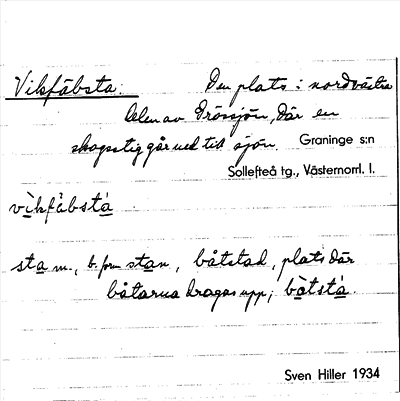 Vikfäbsta. Den plats i nordvästra
delen av Grössjön, där en
skogsstig går ned till sjön. Graninge s:n
Sollefteå tg., Västernorrl. l.
vìkfàbstá
sta m., b. form stan, båtstad, plats där
båtarna dragas upp; bòtstá.
Sven Hiller 1934